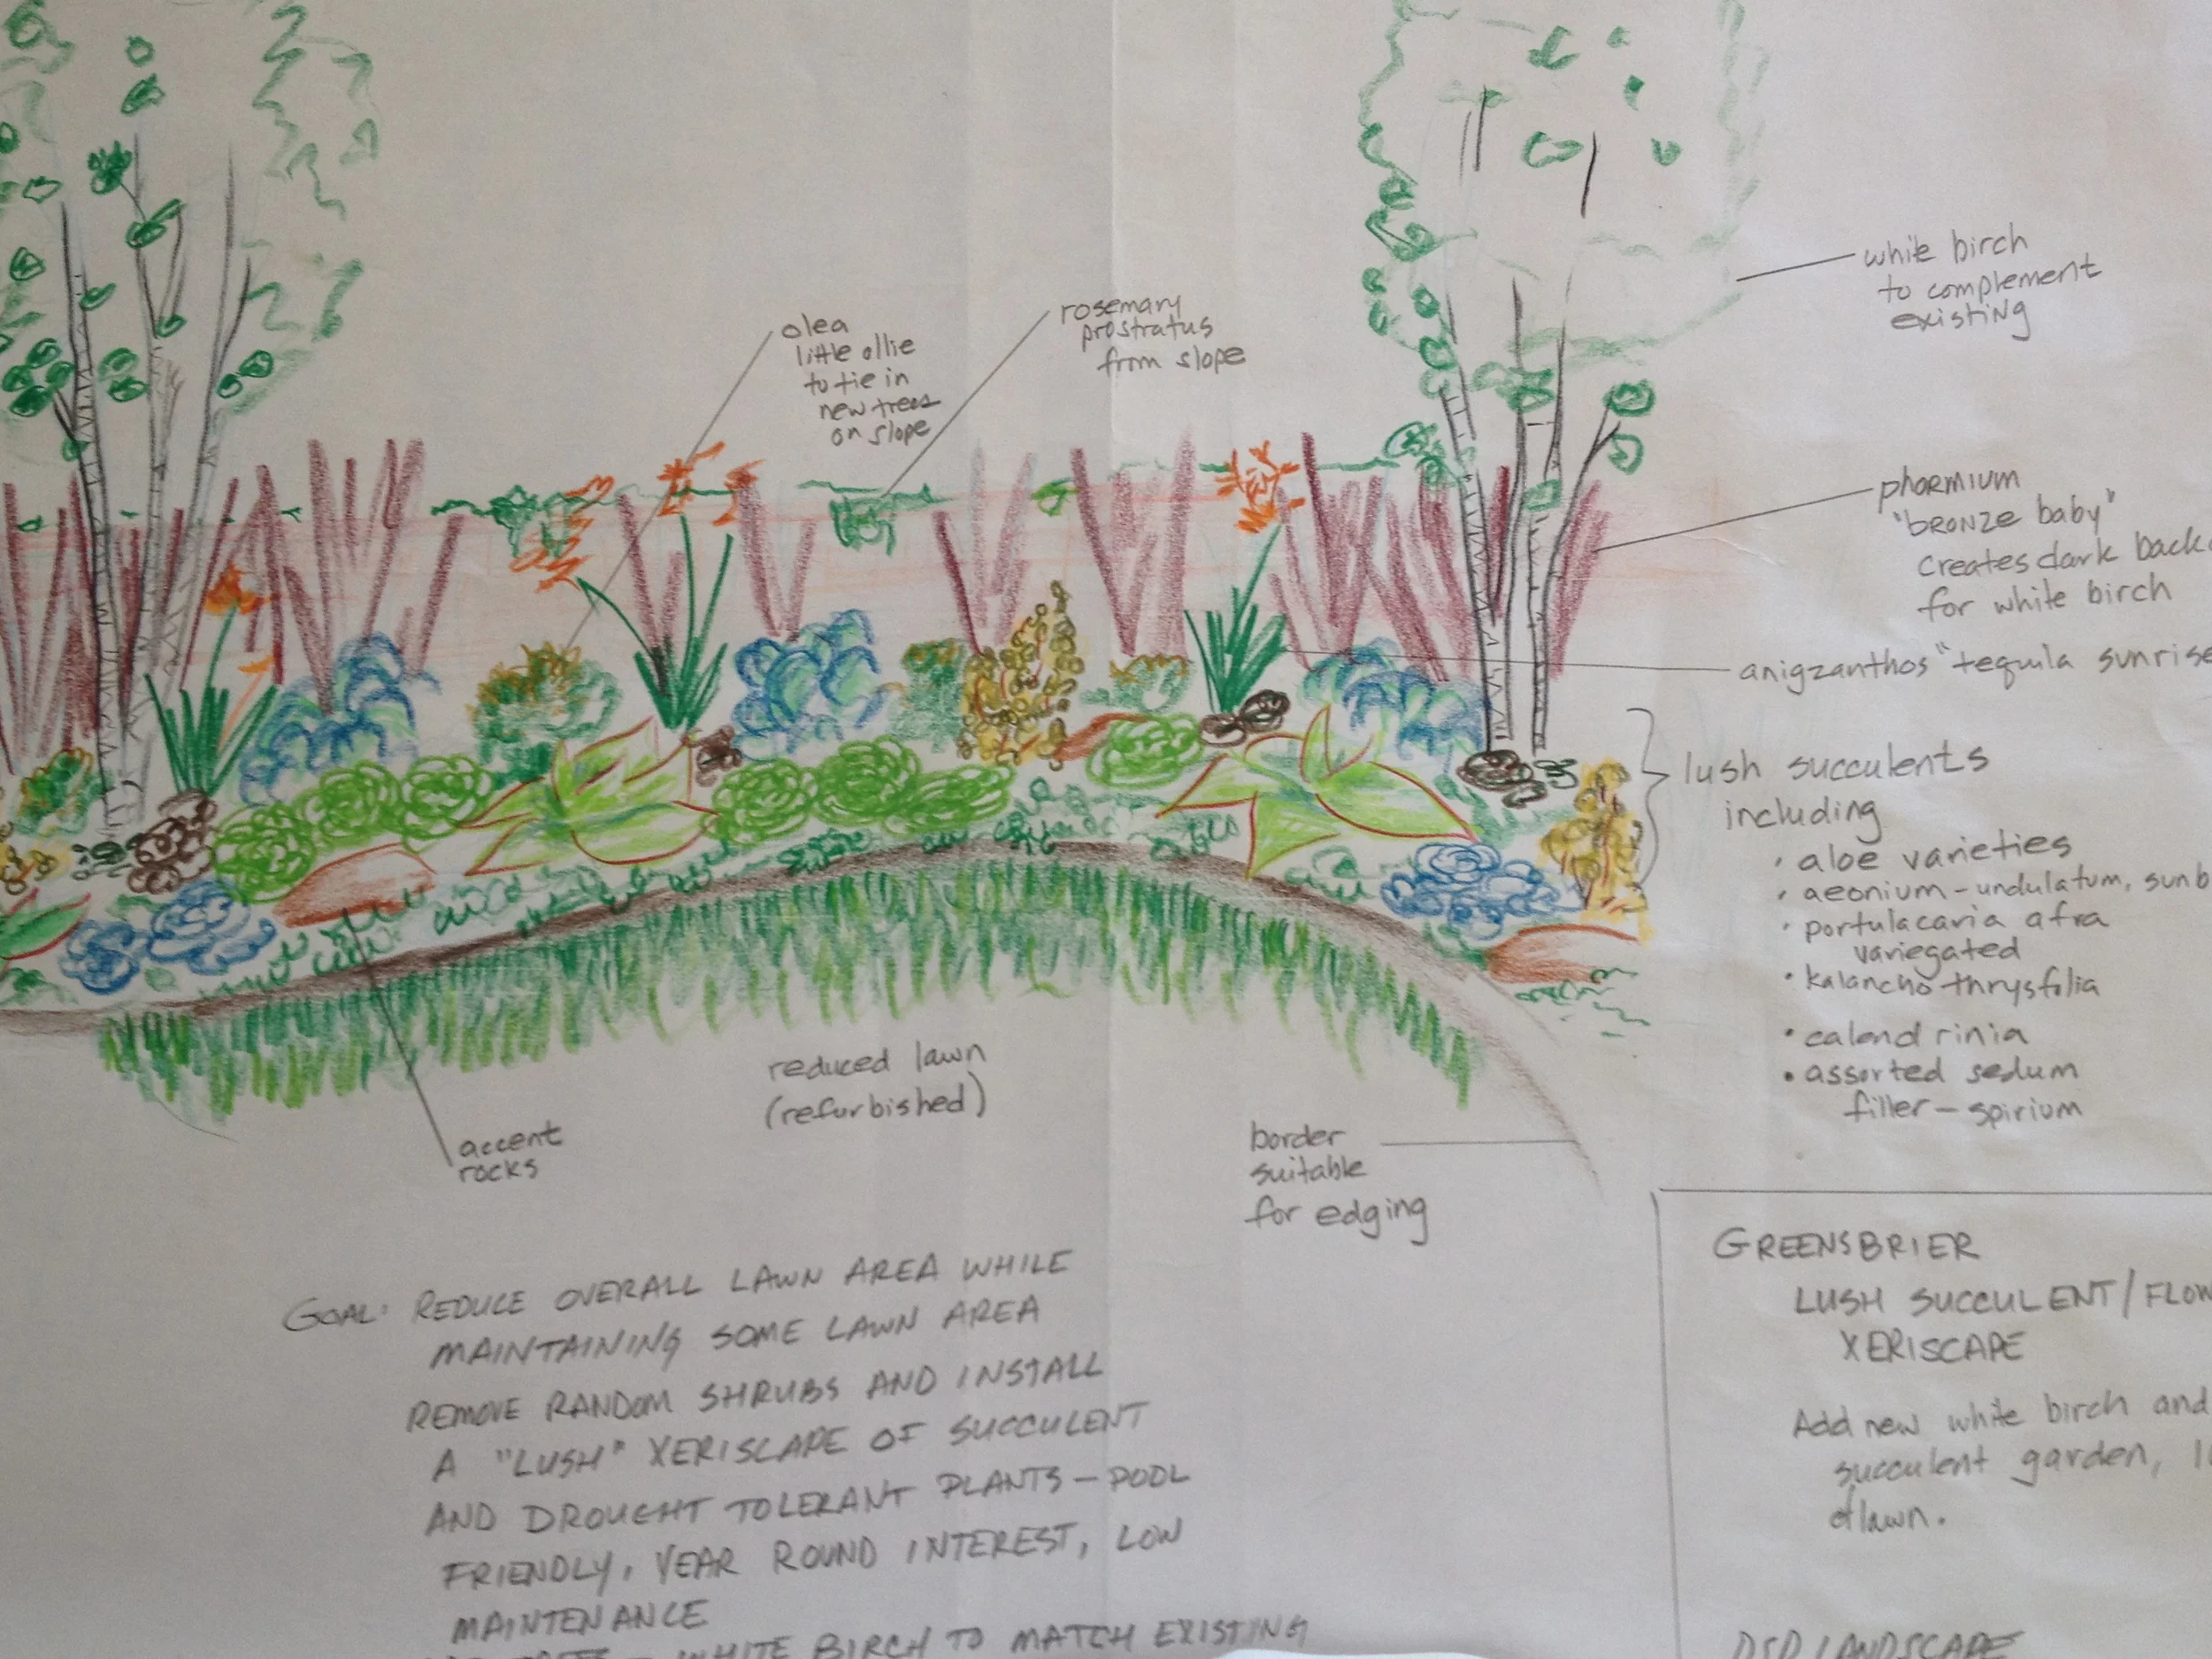 olea
little ollie
to tie in
new trees
on slope
rosemary
prostratus
from slope
white birch
to complement
existing
phormium
"bronze baby"
creates dark back
for white birch
anigzanthos "tequila sunrise
lush succulents
including
· aloe varieties
· aeonium - undulatum, sunb
· portulacaria afra
variegated
· kalancho thrysfolia
· calandrinia
· assorted sedum
filler - spirium
reduced lawn
(refurbished)
accent
rocks
border
suitable
for edging
GOAL: REDUCE OVERALL LAWN AREA WHILE
MAINTAINING SOME LAWN AREA
REMOVE RANDOM SHRUBS AND INSTALL
A "LUSH" XERISCAPE OF SUCCULENT
AND DROUGHT TOLERANT PLANTS - POOL
FRIENDLY, YEAR ROUND INTEREST, LOW
MAINTENANCE
WHITE BIRCH TO MATCH EXISTING
GREENSBRIER
LUSH SUCCULENT / FLOW
XERISCAPE
Add new white birch and
succulent garden,
of lawn.
DSD LANDSCAPE